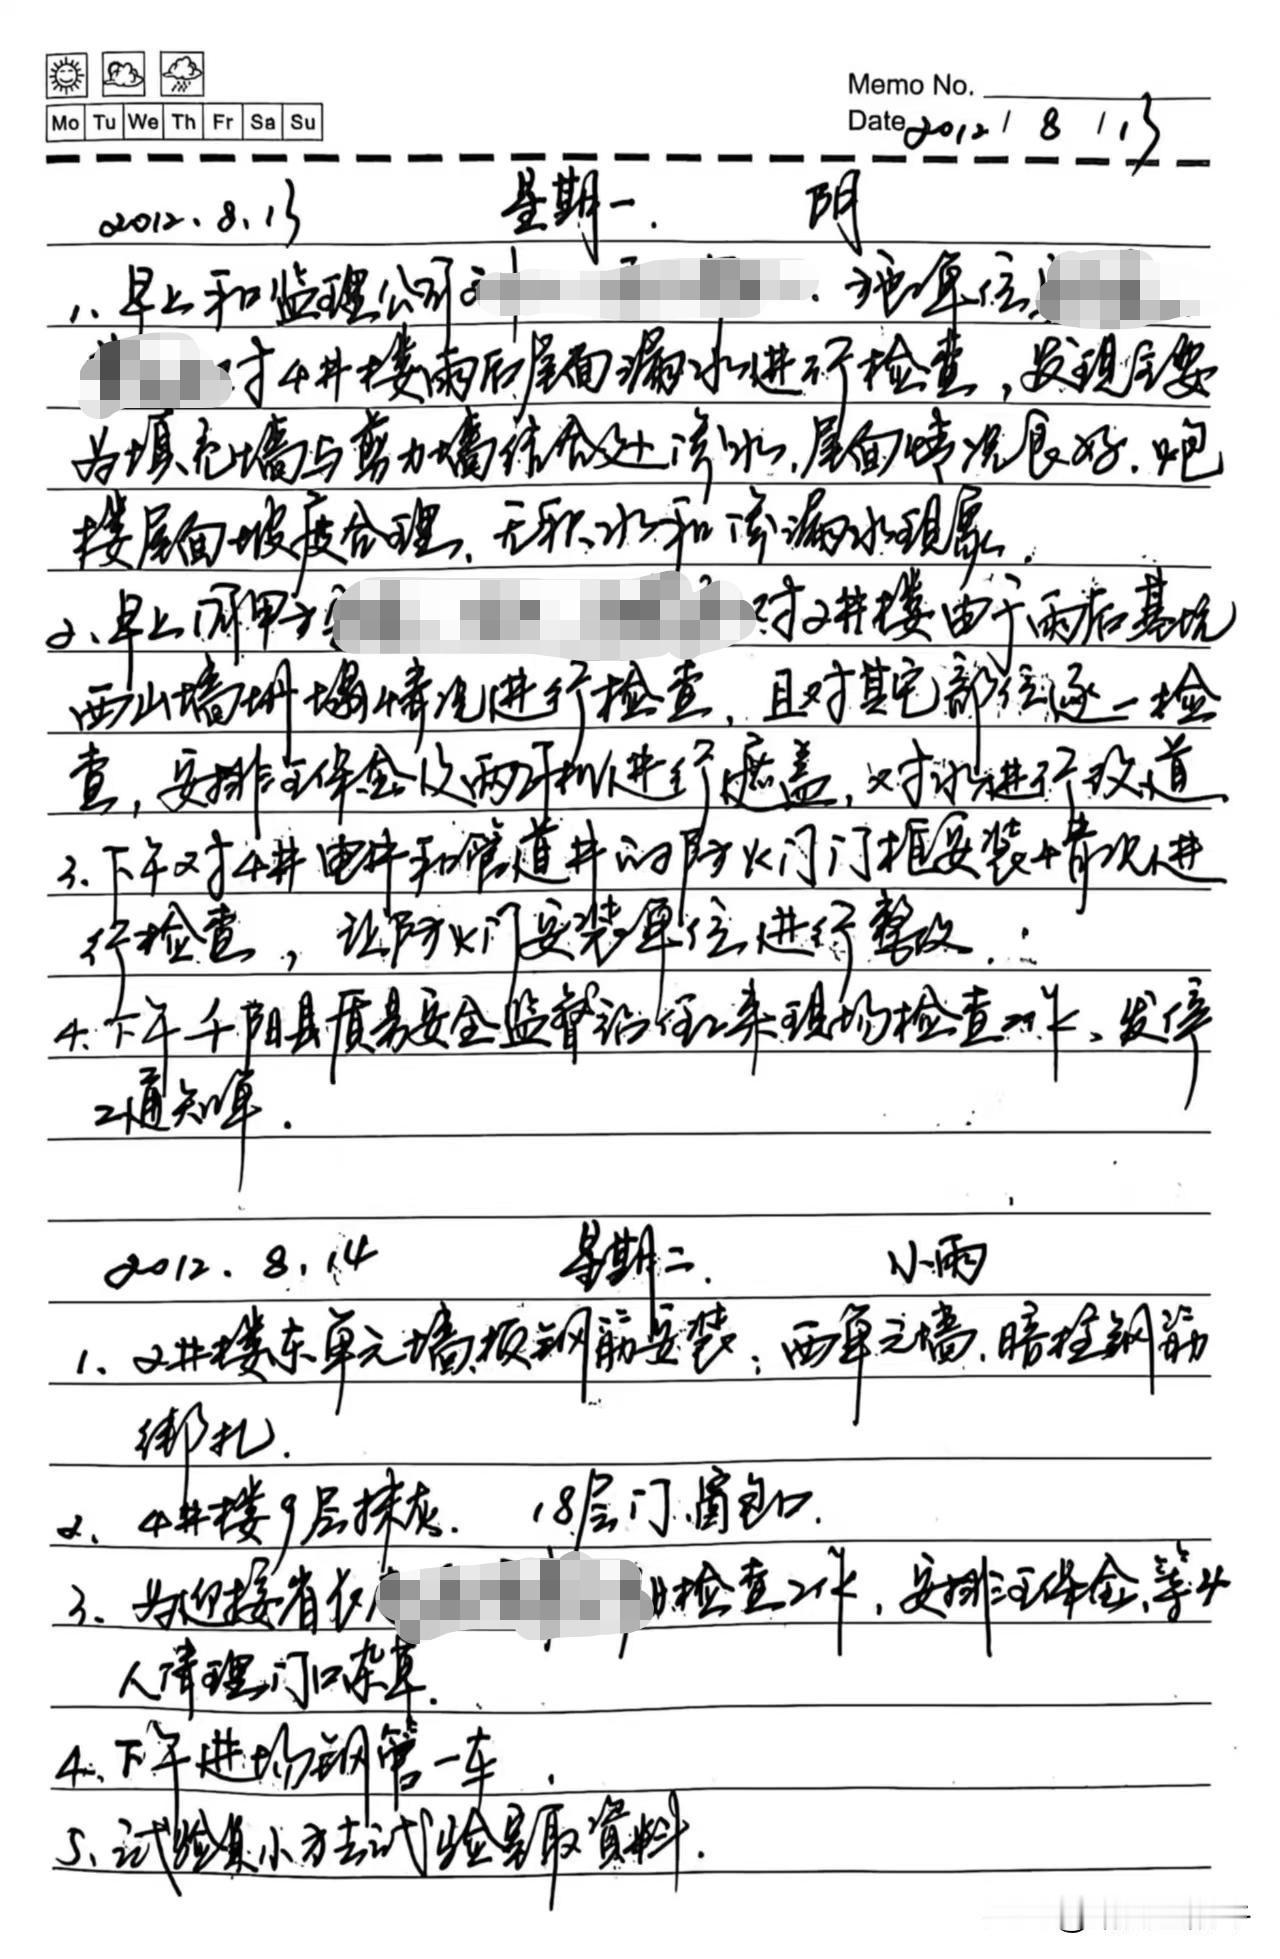 Mo Tu We Th Fr Sa Su
Memo No.
Date 2012 / 8 / 13
2012.8.13 星期一. 阴
1、早上和监理公司 施工单位
对4#楼雨后屋面漏水进行检查，发现主要
为填充墙与剪力墙结合处渗水，屋面情况良好.炮
楼屋面坡度合理、无积水和渗漏水现象.
2、早上 甲方 对2#楼由于雨后基坑
西山墙坍塌情况进行检查，且对其它部位逐一检
查，安排汪保金 进行遮盖，对水进行改道
3、下午对4#电井和管道井的防火门门框安装情况进
行检查，让防火门安装单位进行整改.
4、下午千阳县质量安全监督站 来现场检查工作、发停
工通知单.
2012.8.14 星期二. 小雨
1、2#楼东单元墙、板钢筋安装；西单元墙、暗柱钢筋
绑扎.
2、4#楼9层抹灰. 18层门、窗包口.
3、为迎接省 检查工作，安排汪保金、等4
人清理门口杂草.
4、下午进场钢管一车.
5、试验员小方去试验室取资料.